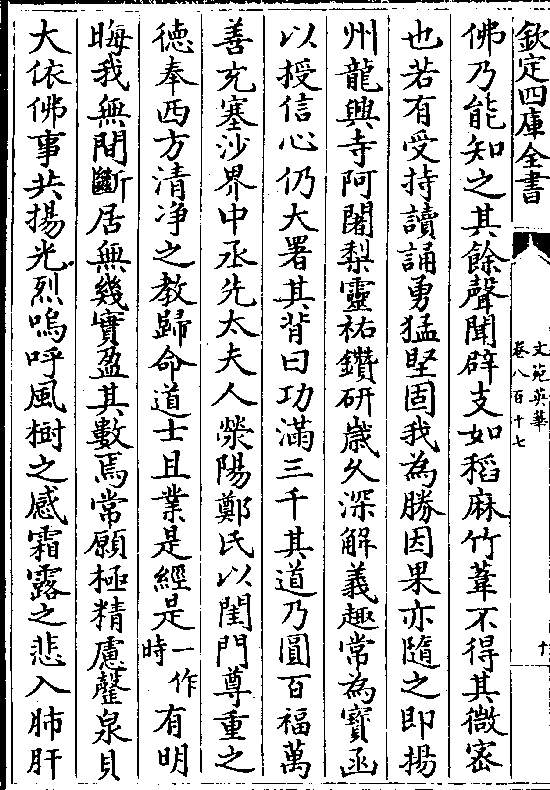 欽定四庫全書
文苑英華
卷八百十七
佛乃能知之其餘聲聞辟支如稻麻竹葦不得其微密
也若有受持讀誦勇猛堅固我為勝因果亦隨之即揚
州龍興寺阿闍梨靈祐鑽研歲久深解義趣常為寳函
以授信心仍大署其背曰功滿三千其道乃圓百福萬
善充塞沙界中丞先太夫人滎陽鄭氏以閨門尊重之
德奉西方清净之教歸命道士且業是經是一作時有明
晦我無間斷居無幾實盈其數焉常願極精慮罄泉貝
大依佛事共揚光烈嗚呼風樹之感霜露之悲入肺肝